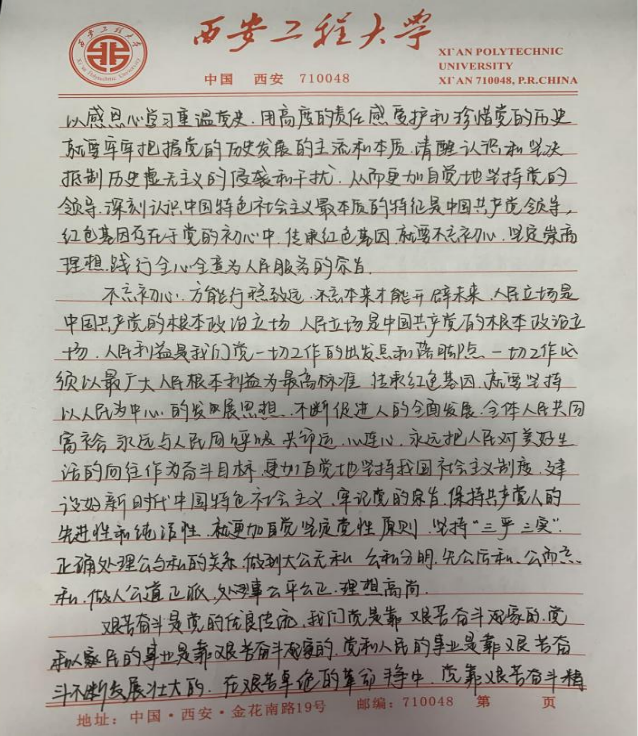 西安工程大学
中国 西安 710048
XI'AN POLYTECHNIC
UNIVERSITY
XI'AN 710048, P.R.CHINA
以感恩心学习重温党史,用高度的责任感爱护和珍惜党的历史
就要牢牢把握党的历史发展的主流和本质,清醒认识和坚决
抵制历史虚无主义的侵袭和干扰,从而更加自觉地坚持党的
领导,深刻认识中国特色社会主义最本质的特征是中国共产党领导,
红色基因存在于党的初心中,传承红色基因,就要不忘初心,坚定崇高
理想,践行全心全意为人民服务的宗旨.
不忘初心,方能行稳致远,不忘本来才能开辟未来,人民立场是
中国共产党的根本政治立场,人民立场是中国共产党的根本政治立
场,人民利益是我们党一切工作的出发点和落脚点,一切工作必
须以最广大人民根本利益为最高标准,传承红色基因,就要坚持
以人民为中心的发展思想,不断促进人的全面发展,全体人民共同
富裕,永远与人民同呼吸共命运,心连心,永远把人民对美好生
活的向往作为奋斗目标,更加自觉地坚持我国社会主义制度,建
设好新时代中国特色社会主义,牢记党的宗旨,保持共产党人的
先进性和纯洁性,就更加自觉坚定党性原则,坚持"三严三实",
正确处理公与私的关系,做到大公无私,公私分明,先公后私,公而忘
私,做人公道正派,处理事公平公正,理想高尚.
艰苦奋斗是党的优良传统,我们党是靠艰苦奋斗起家的,党
和人民的事业是靠艰苦奋斗起家的,党和人民的事业是靠艰苦奋
斗不断发展壮大的,在艰苦卓绝的革命斗争中,党靠艰苦奋斗精
地址:中国·西安·金花南路19号 邮编:710048 第 页